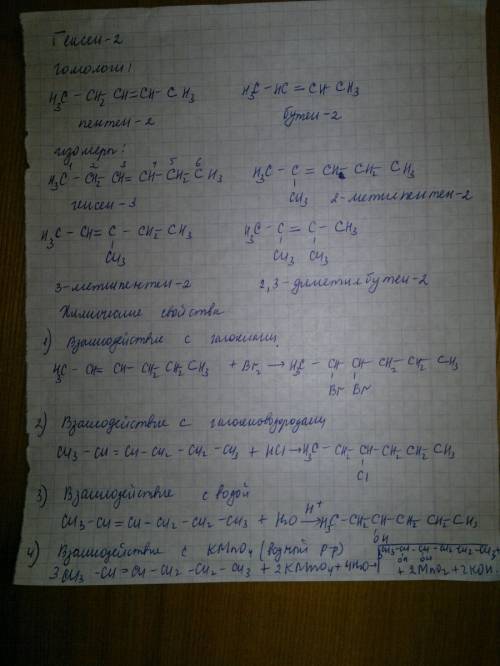 Гексен-2
гомологи:
H₃C - CH₂ CH=CH - CH₃ H₃C - HC = CH CH₃
пентен-2 бутен-2
изомеры:
1 2 3 4 5 6
H₃C - CH₂ CH= CH-CH₂ CH₃ H₃C - C = CH - CH₂ CH₃
CH₃
гексен-3 2-метилпентен-2
H₃C - CH= C - CH₂ CH₃ H₃C - C = C - CH₃
CH₃ CH₃ CH₃
3-метилпентен-2 2,3-диметилбутен-2
Химические свойства
1) Взаимодействие с галогенами
H₃C - CH= CH - CH₂ CH₂ CH₃ + Br₂ → H₃C - CH - CH - CH₂ CH₂ CH₃
Br Br
2) Взаимодействие с галогеноводородами
CH₃ - CH = CH - CH₂ - CH₂ - CH₃ + HCl → H₃C - CH₂ CH-CH₂ CH₂ CH₃
Cl
3) Взаимодействие с водой
CH₃-CH = CH - CH₂ - CH₂ - CH₃ + H₂O H⁺→ H₃C - CH₂ CH-CH₂ CH₂ CH₃
OH
4) Взаимодействие с KMnO₄ (водный р-р)
3CH₃ - CH = CH - CH₂ - CH₂ - CH₃ + 2KMnO₄ + 4H₂O → 3CH₃-CH-CH-CH₂-CH₂-CH₃
OH OH
+ 2MnO₂ + 2KOH